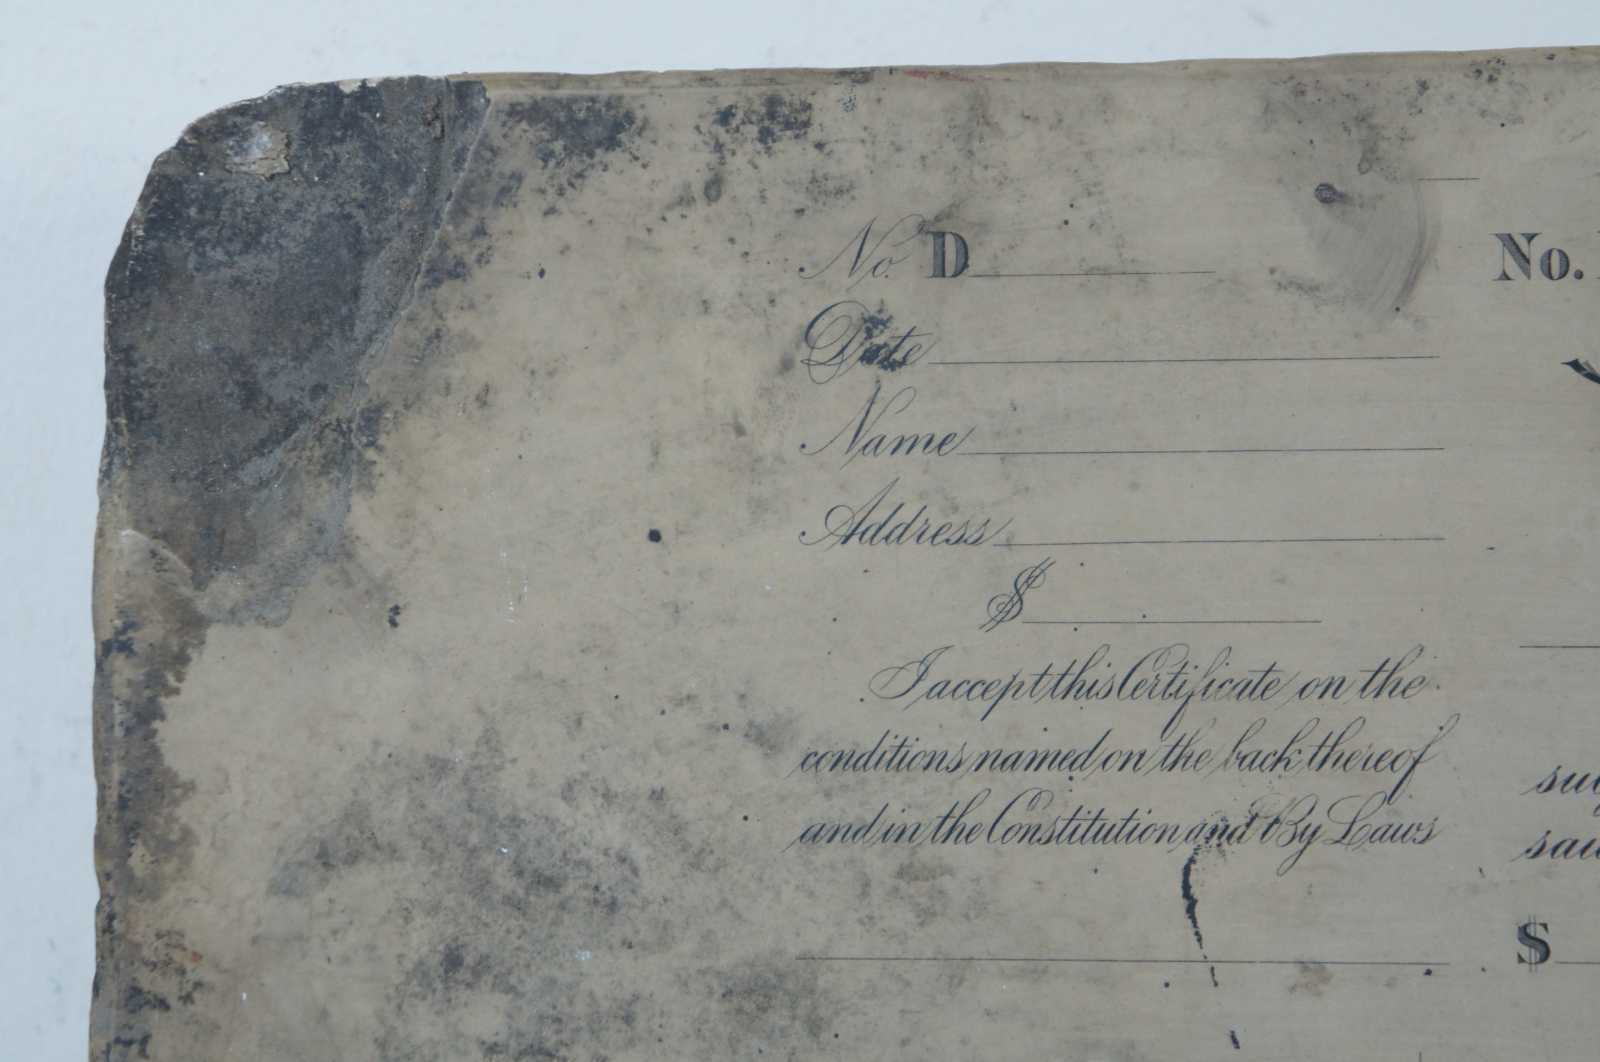 No. D
No.
Date
Name
Address
$
I accept this Certificate on the
conditions named on the back thereof
and in the Constitution and By Laws
$